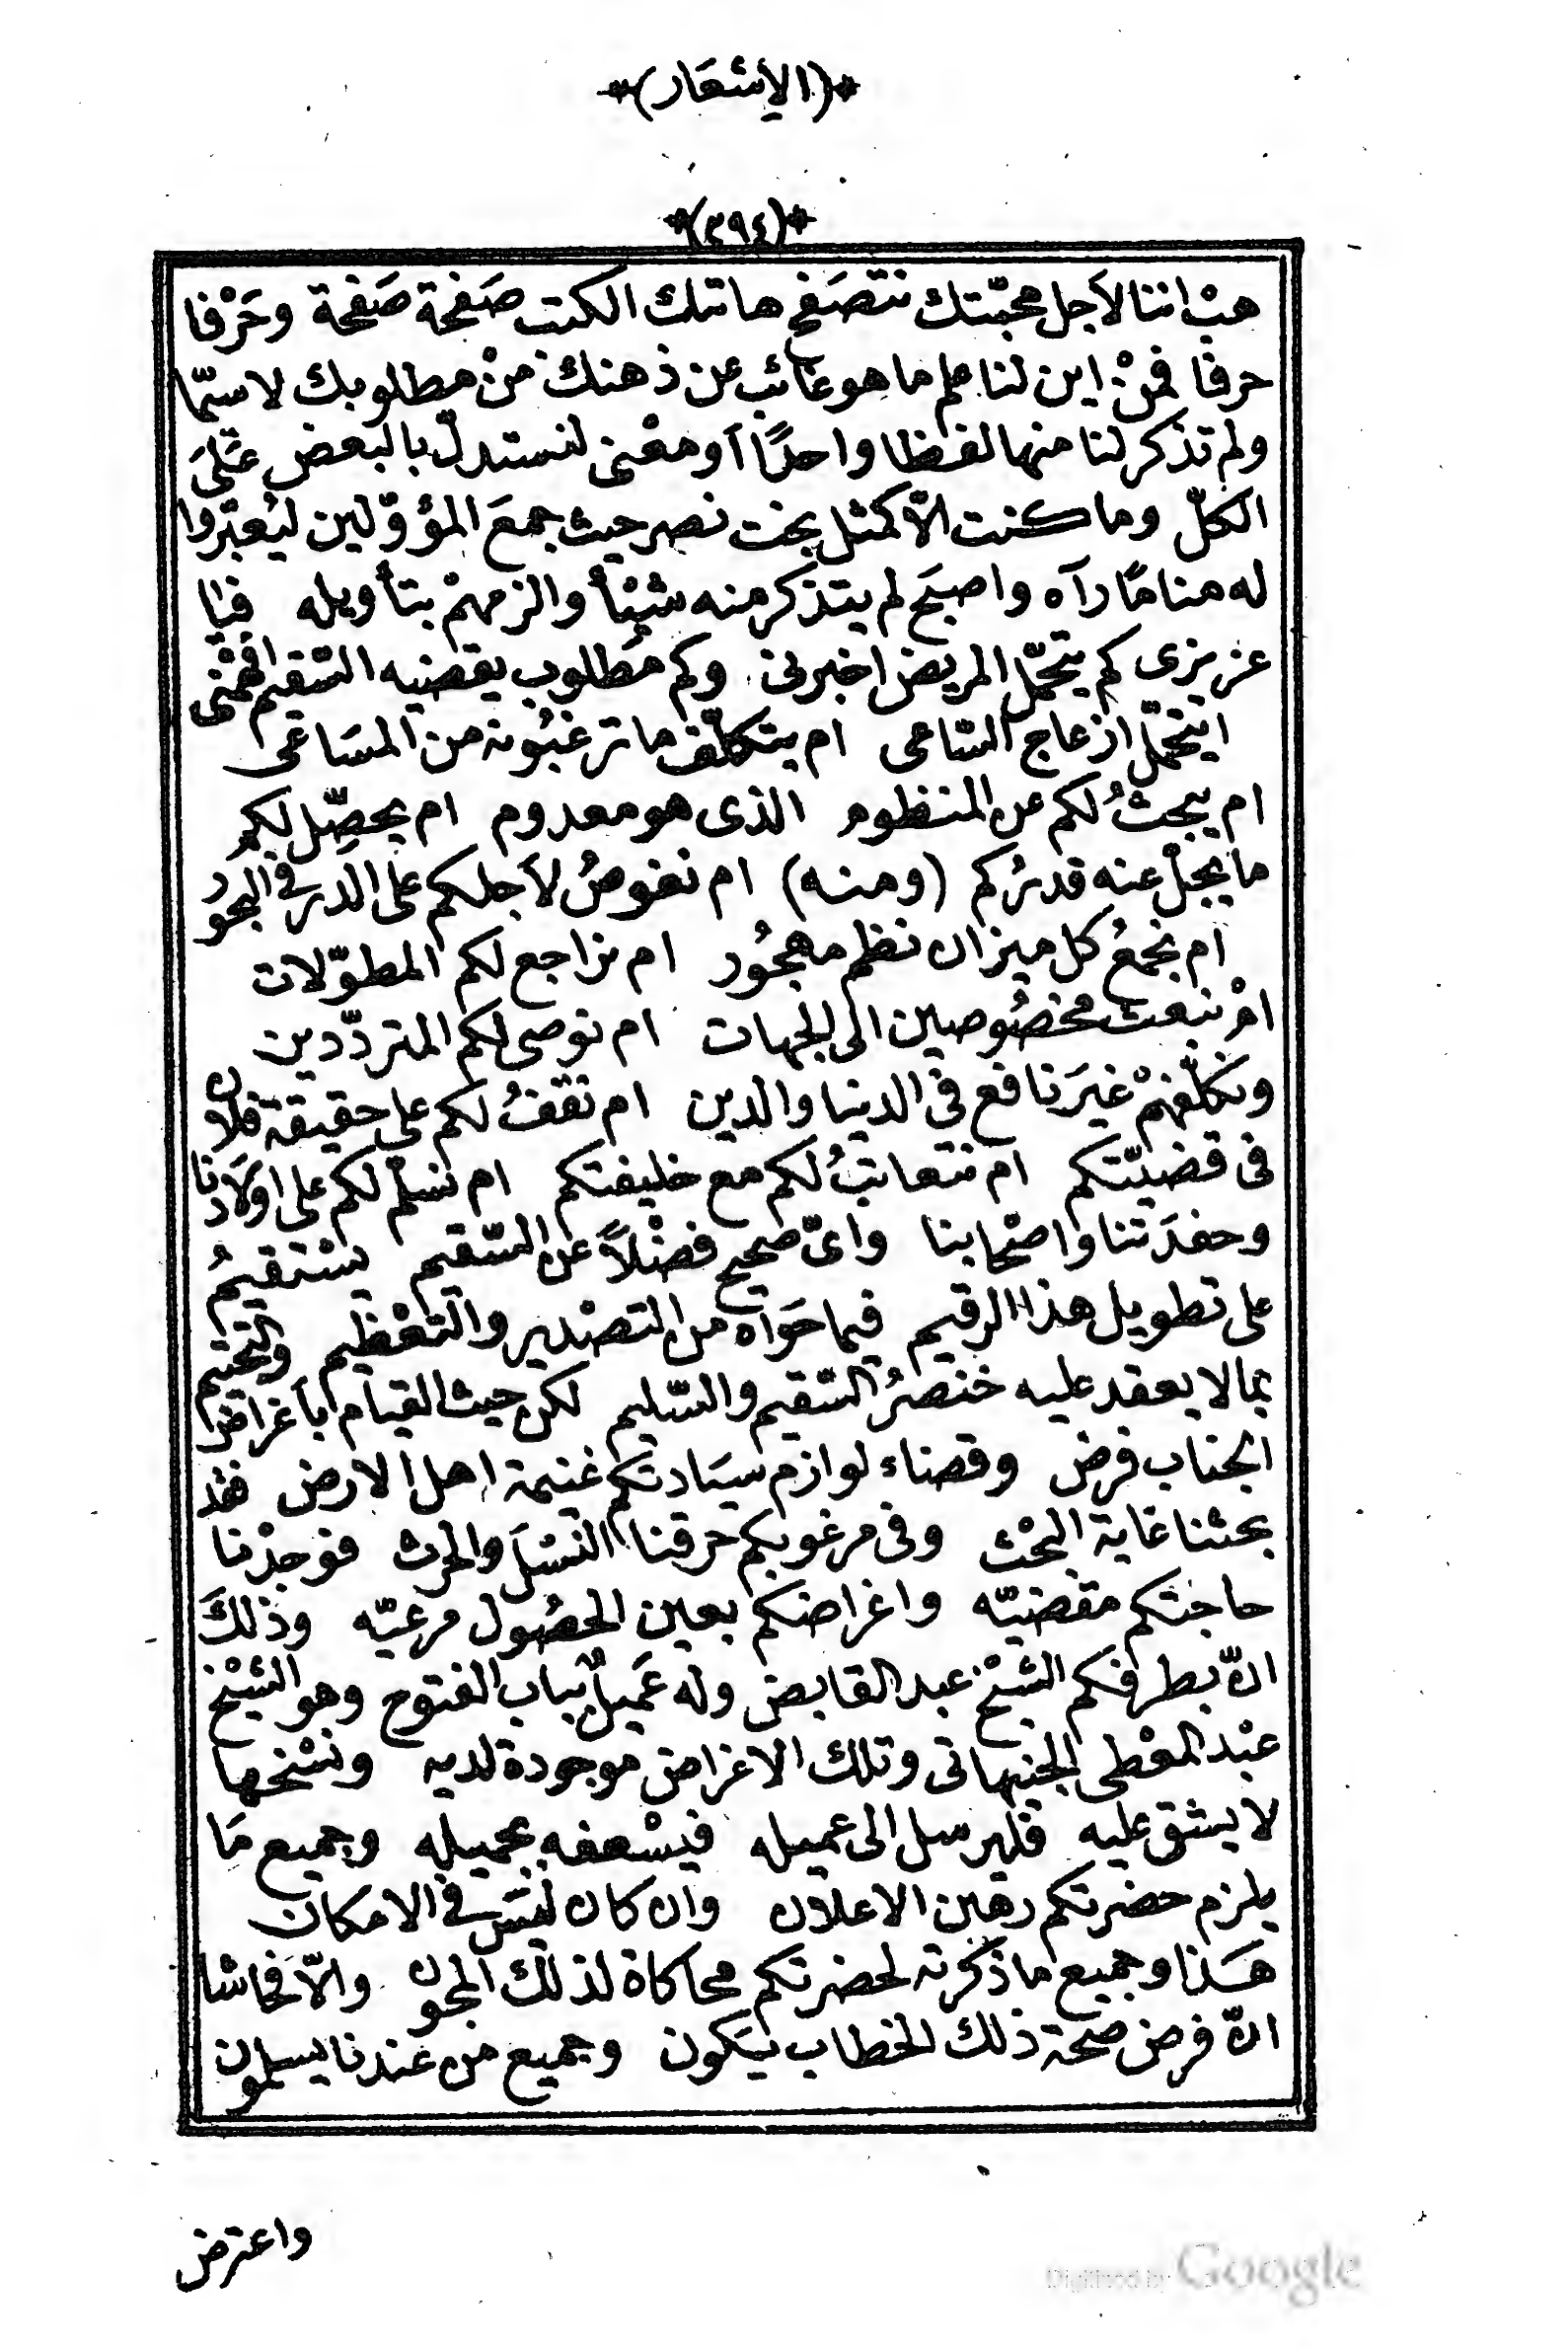 *(الإشعار)*
*(٢٩٤)*
هبْ اننا لأجل محبّتك نتصَفح هاتلك الكتب صَفحة صَفحة وحَرْفا
حرفا فمنْ اين لنا علم ما هو غائب عن ذهنك منْ مطلوبك لاسيّما
ولم تذكر لنا منها لفظا واحدًا أو معْنى لنستدلّ بالبعض عَلىَ
الكلّ وما كنت الّا كمثل بخت نصر حيث جمعَ المؤوّلين ليُعبّروا
له منامًا رآه واصبَح لم يتذكر منه شيْئًا والزمهمْ بتأويله فيا
عزيزى كم يتحمّل المريض اخبرنى وكم مَطلوب يقضيه السّقيم افهمْنى
ايتحمّل ازعاج السّاعى ام يتكلّف ما ترغبُونه من المسَاعى
ام يبحثُ لكم عن المنظوم الذى هو معدوم ام يحصِّل لكم
ما يجلّ عنه قدرُكم (ومنه) ام نغوصُ لأجلكم على الدر في البحُور
ام نجمعُ كل ميزان نظم مهجُور ام نراجع لكم المطوّلات
امْ نبعث مخصُوصين الى الجهات ام نوصى لكم المتردّدين
ونكلّفهمْ غيَر نافع فى الدنيا والدين ام نقفُ لكم على حقيقة فلان
فى قضيّتكم ام نتعاتبُ لكم مع خليفتكم ام نسلّم لكم على اولادنا
وحفدَتنا واصْحابنا واىّ صحيح فضْلاً عن السّقيم يسْتقيمُ
على تطويل هذا الرقيم فيما حَواه من التصْدير والتعْظيم والتختيم
بما لا يعقد عليه خنصرُ السّقيم والسّليم لكن حيث القيام بأغراض
الجناب فرض وقضاء لوازم سيَادتكم غنيمة اهل الارض فقد
بحثنا غاية البحْث وفى مرغوبكم حرقنا النسْلَ والحرث فوجدْنا
حاجتكم مقضيّه واغراضكم بعين الحصُول مرعيّه وذلكَ
انّ بطرفكم الشيْخ عبد القابض وله عَميلٌ بباب الفتوح وهو الشيْخ
عبْد المعْطى الجنيهاتى وتلك الاغراض موجودة لديه ونسْخها
لا يشق عليه فليرسل الى عميله فيسْعفه بجميله وجميع مَا
يلزم حضرتكم رهين الاعلان وان كان ليسَ في الامكان
هَذا وجميع ما ذكرته لحضرتكم محاكاة لذلك المجون والّا فحاشا
انّ فرض صحة ذلك الخطاب يَكون وجميع من عندنا يسلمون
واعترض
Digitized by Google